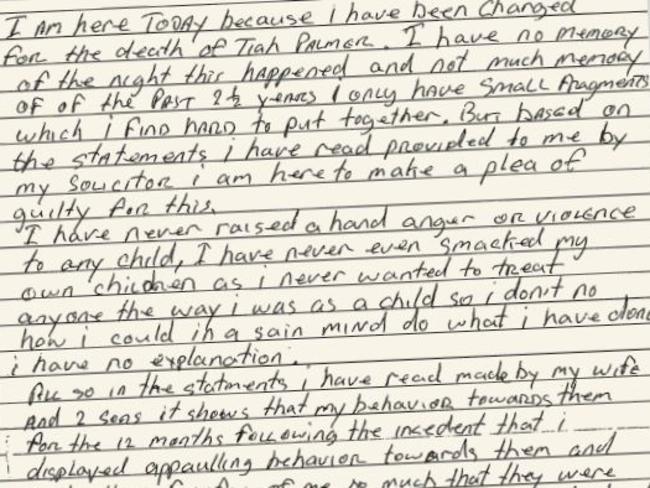 I Am here TODAY because i have been Changed
for the death of Tiah PALMER. I have no memory
of the night this happened and not much memory
of of the PAST 2½ years I only have small fragments
which i FIND HARD to put together. But based on
the statements i have read provided to me by
my Solicitor i am here to make a plea of
guilty for this.
I have never raised a hand anger or violence
to any child, I have never even smacked my
own children as i never wanted to treat
anyone the way i was as a child so i don't no
how i could in a sain mind do what i have done
i have no explanation.
All so in the statments i have read made by my wife
And 2 sons it shows that my behavior towards them
for the 12 months following the incedent that i
displayed appaulling behavior towards them and
of me so much that they were